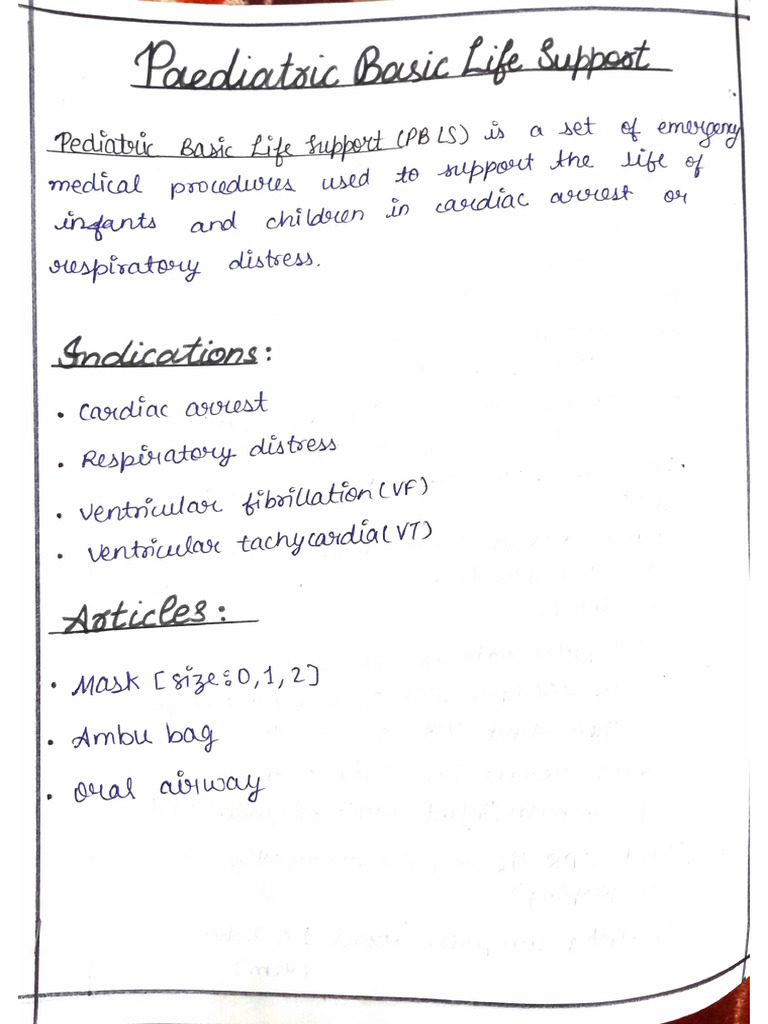 Paediatric Basic Life Support
Pediatric Basic Life Support (PBLS) is a set of emergency
medical procedures used to support the life of
infants and children in cardiac arrest or
respiratory distress.
Indications:
• Cardiac arrest
• Respiratory distress
• Ventricular fibrillation (VF)
• Ventricular tachycardia (VT)
Articles:
• Mask [size: 0, 1, 2]
• Ambu bag
• Oral airway